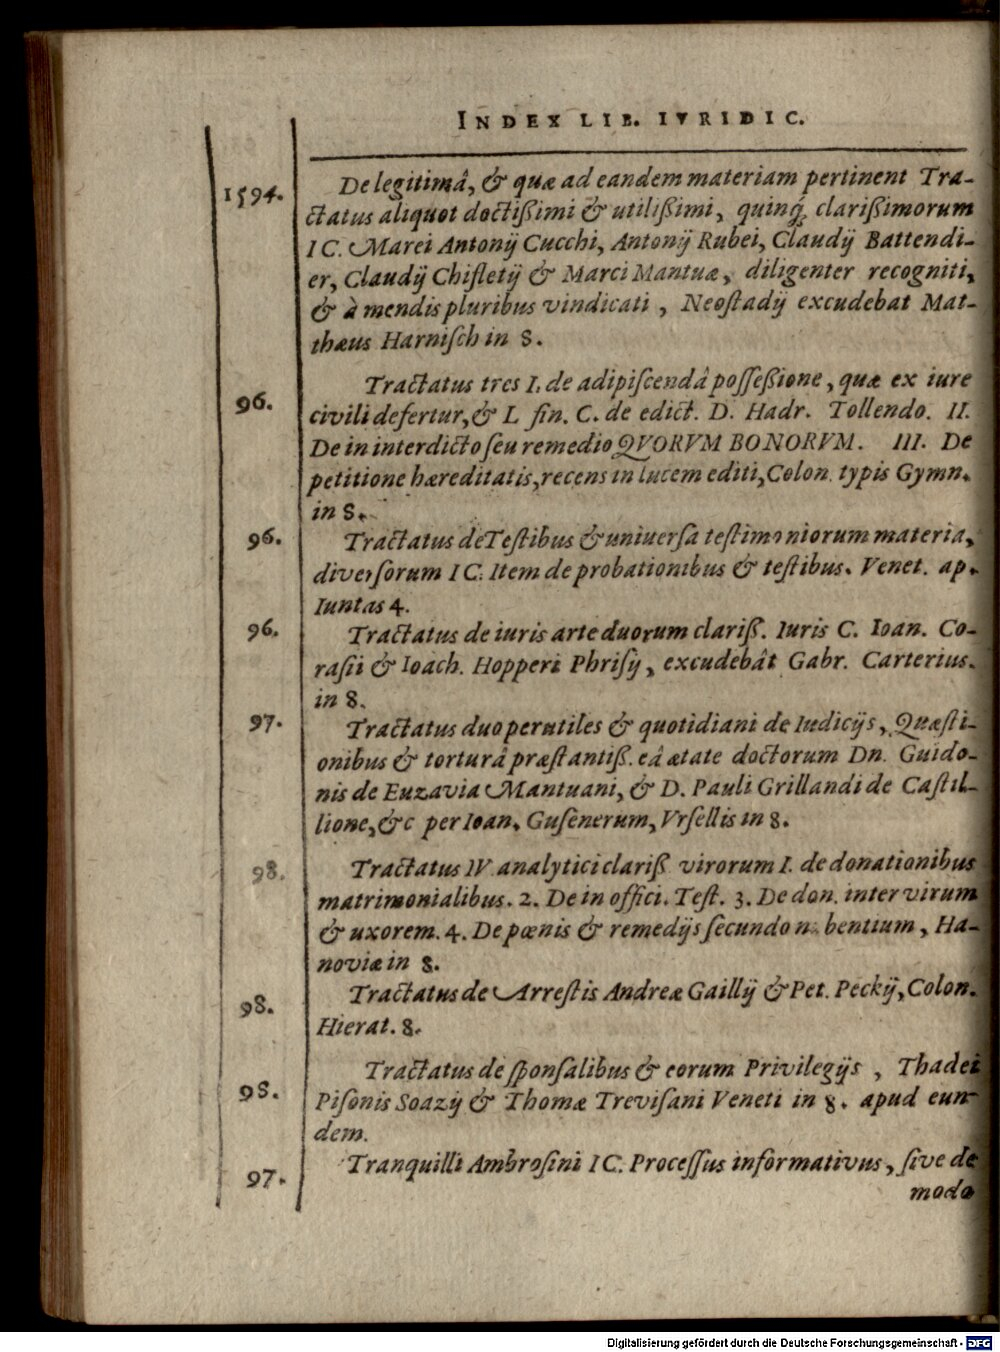 INDEX LIB. IVRIDIC.
1594. De legitimâ, & quæ ad eandem materiam pertinent Tra-
ctatus aliquot doctißimi & utilißimi, quinq́; clarißimorum
IC. Marci Antonij Cucchi, Antonij Rubei, Claudij Battendi-
er, Claudij Chifletij & Marci Mantuæ, diligenter recogniti,
& à mendis pluribus vindicati, Neoſtadij excudebat Mat-
thæus Harniſch in 8.
96. Tractatus tres I. de adipiſcendâ poſſeßione, quæ ex iure
civili defertur, & L fin. C. de edict. D. Hadr. Tollendo. II.
De in interdicto ſeu remedio QVORVM BONORVM. III. De
petitione hæreditatis, recens in lucem editi, Colon. typis Gymn.
in 8.
96. Tractatus de Teſtibus & univerſa teſtimoniorum materia,
diverſorum IC. Item de probationibus & teſtibus. Venet. ap.
Iuntas 4.
96. Tractatus de iuris arte duorum clariß. Iuris C. Ioan. Co-
raſii & Ioach. Hopperi Phriſij, excudebât Gabr. Carterius.
in 8.
97. Tractatus duo perutiles & quotidiani de Iudicijs, Quæſti-
onibus & torturâ præſtantiß. eâ ætate doctorum Dn. Guido-
nis de Euzavia Mantuani, & D. Pauli Grillandi de Caſtil-
lione, &c per Ioan. Guſenerum, Vrſellis in 8.
98. Tractatus IV analytici clariß virorum I. de donationibus
matrimonialibus. 2. De in offici. Teſt. 3. De don. inter virum
& uxorem. 4. De pœnis & remedijs ſecundo n bentium, Ha-
noviæ in 8.
98. Tractatus de Arreſtis Andreæ Gaillij & Pet. Peckij, Colon.
Hierat. 8.
98. Tractatus de ſponſalibus & eorum Privilegijs, Thadei
Piſonis Soazij & Thomæ Treviſani Veneti in 8. apud eun-
dem.
97. Tranquilli Ambroſini IC. Proceſſus informativus, ſive de
modo
Digitalisierung gefördert durch die Deutsche Forschungsgemeinschaft - DFG